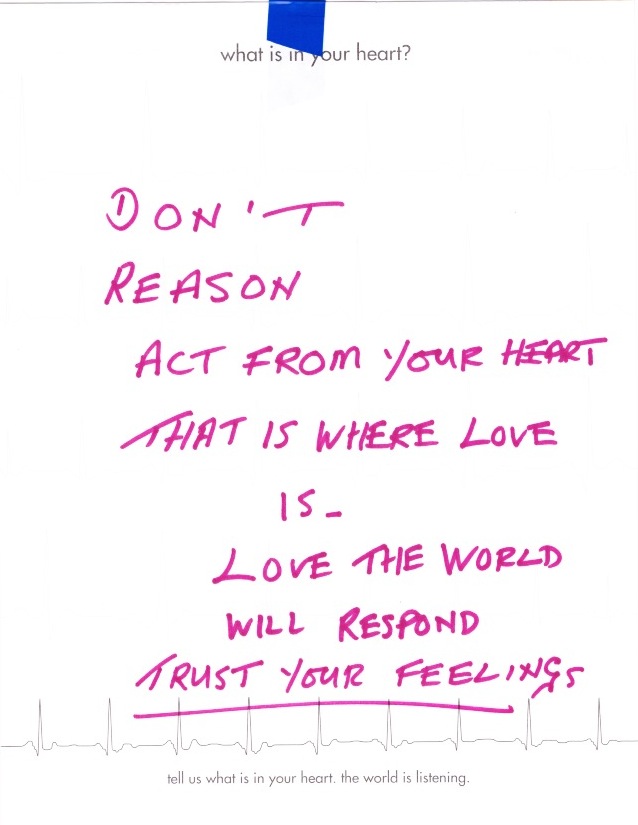 what is in your heart?
DON'T
REASON
ACT FROM YOUR HEART
THAT IS WHERE LOVE
IS_
LOVE THE WORLD
WILL RESPOND
TRUST YOUR FEELINGS
tell us what is in your heart. the world is listening.